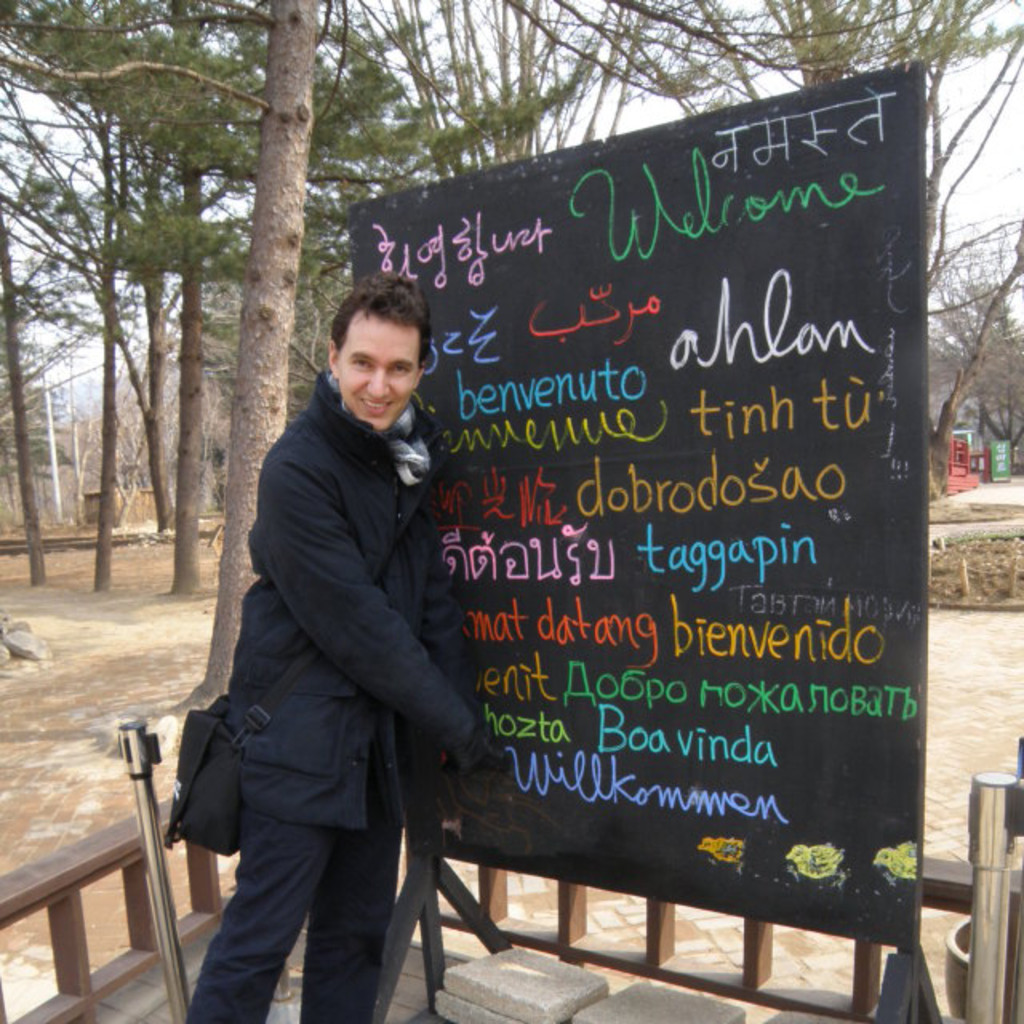 नमस्ते
Welcome
환영합니다
مرحب
ahlan
benvenuto
tinh tù
dobrodošao
ดีต้อนรับ
taggapin
Тавтай
mat datang
bienvenido
enit
Добро пожаловать
hozta
Boa vinda
Willkommen